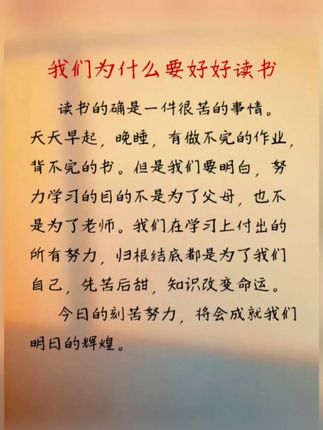 我们为什么要好好读书
读书的确是一件很苦的事情。
天天早起，晚睡，有做不完的作业，
背不完的书。但是我们要明白，努
力学习的目的不是为了父母，也不
是为了老师。我们在学习上付出的
所有努力，归根结底都是为了我们
自己，先苦后甜，知识改变命运。
今日的刻苦努力，将会成就我们
明日的辉煌。